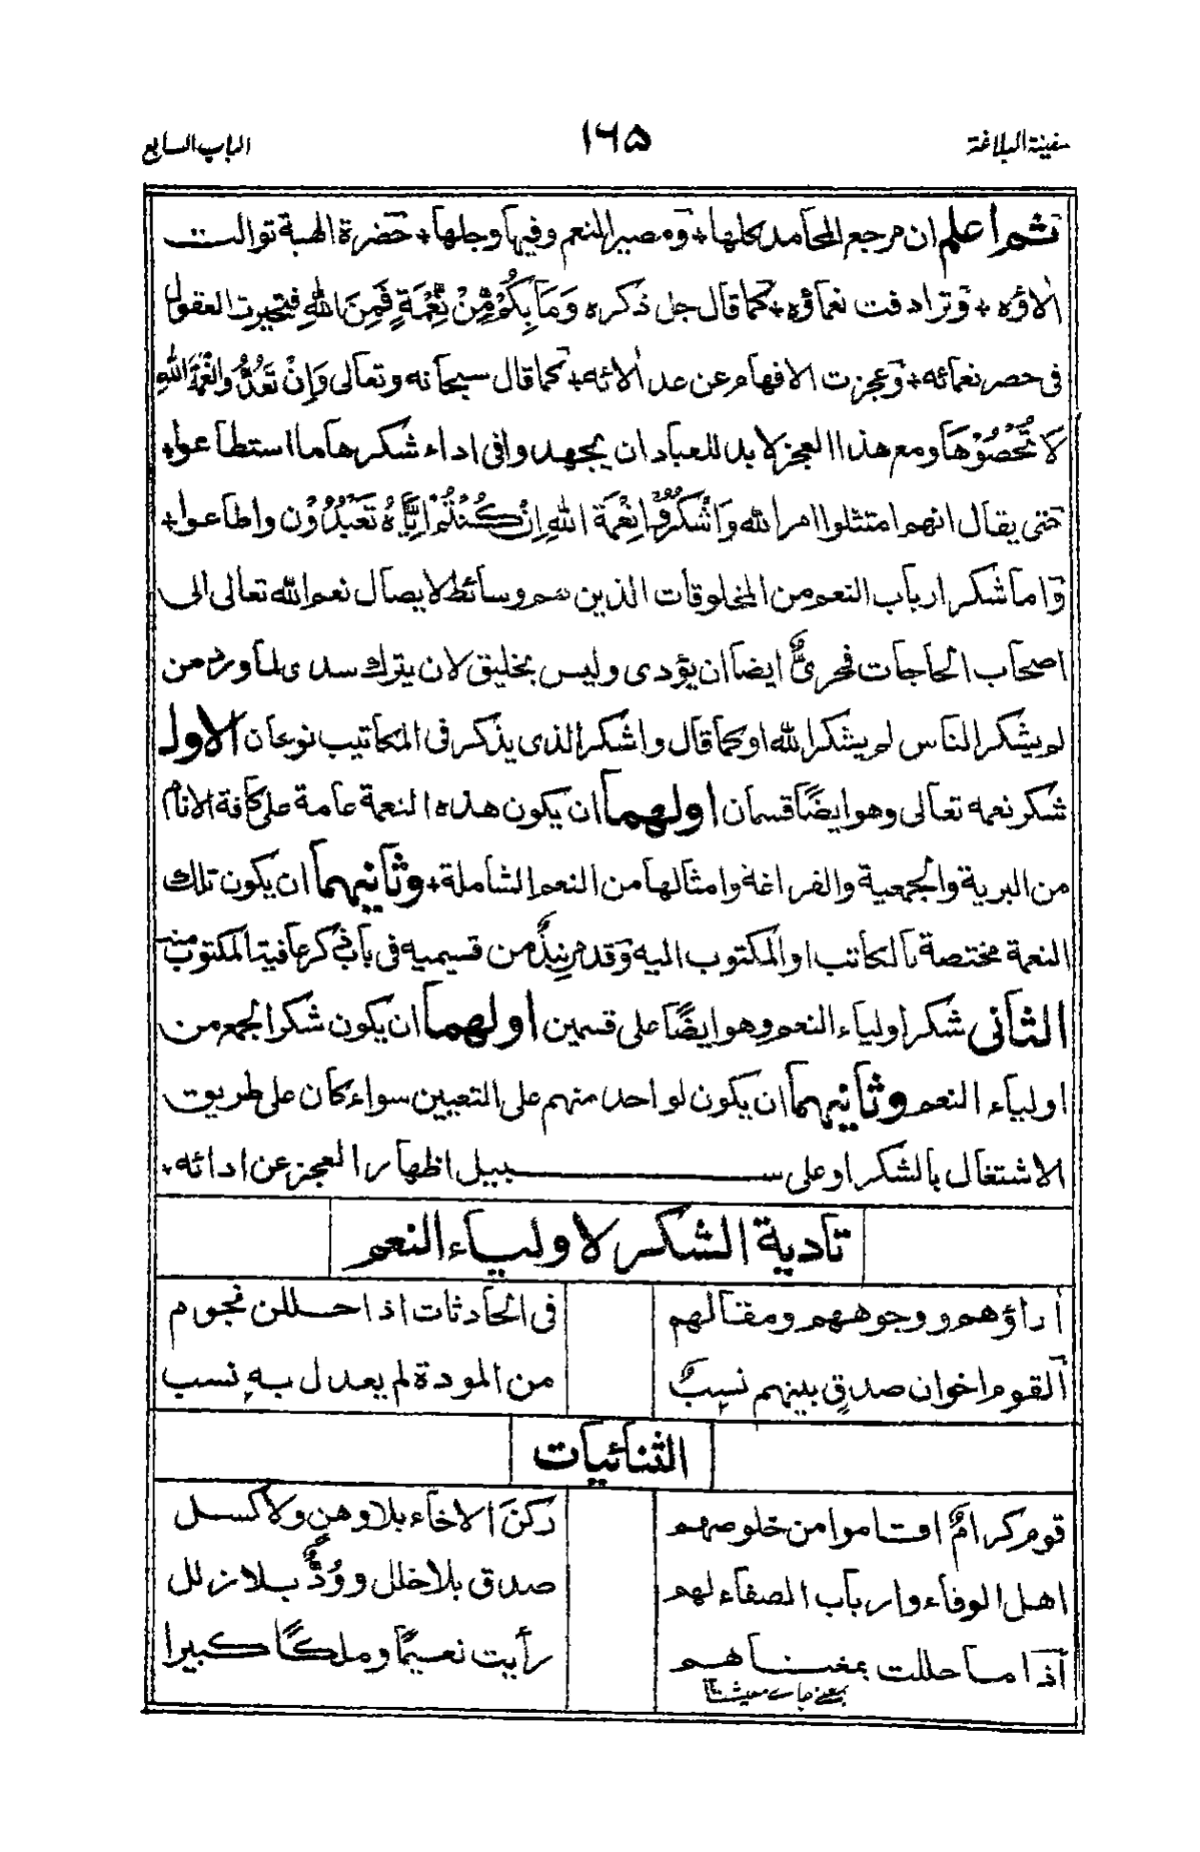 سفينة البلاغة
١٦٥
الباب السابع
ثم اعلم ان مرجع المحامد كلها + ومصير النعم وفيها وجلها + حضرة الهية توالت
الاؤه + وترادفت نعماؤه + كما قال جل ذكره وَمَا بِكُمْ مِّنْ نِّعْمَةٍ فَمِنَ اللهِ فتحيرت العقول
فى حصر نعمائه + وعجزت الافهام عن عد الائه + كما قال سبحانه وتعالى وَاِنْ تَعُدُّوا نِعْمَةَ اللهِ
لَا تُحْصُوْهَا ومع هذا العجز لا بد للعباد ان يجهدوا فى اداء شكرها ما استطاعوا +
حتى يقال انهم امتثلوا امر الله وَاشْكُرُوْا نِعْمَةَ اللهِ اِنْ كُنْتُمْ اِيَّاهُ تَعْبُدُوْن واطاعوا +
واما شكر ارباب النعم من المخلوقات الذين هم وسائط لايصال نعم الله تعالى الى
اصحاب الحاجات فحرىٌّ ايضا ان يؤدى وليس بخليق لان يترك سدى لما ورد من
لم يشكر الناس لم يشكر الله او كما قال واشكر الذى يذكر فى المكاتيب نوعان الاول
شكر نعمه تعالى وهو ايضًا قسمان اولهما ان يكون هذه النعمة عامة على كافة الانام
من البرية والجمعية والفراغة وامثالها من النعم الشاملة + وثانيهما ان يكون تلك
النعمة مختصة بالكاتب او المكتوب اليه وقد مر نبذٌ من قسيميه فى باب ذكر عافية المكتوب منه
الثانى شكر اولياء النعم وهو ايضًا على قسمين اولهما ان يكون شكر الجمع من
اولياء النعم وثانيهما ان يكون لواحد منهم على التعيين سواء كان على طريق
الاشتغال بالشكر او على سبيل اظهار العجز عن ادائه +
تادية الشكر لاولياء النعم
أراؤهم ووجوههم ومقالهم
فى الحادثات اذا حللن نجوم
القوم اخوان صدقٍ بينهم نسبٌ
من المودة لم يعدل به نسب
الثنائيات
قوم كرامٌ اقاموا من خلوصهم
ركنَ الاخاء بلا وهنٍ ولا كسل
اهل الوفاء وارباب الصفاء لهم
صدق بلا خلل ووُدٌّ بلا زلل
اذا ما حللت بمغناهم
رأيت نعيمًا وملكًا كبيرا
بمعنى جاے معيشت